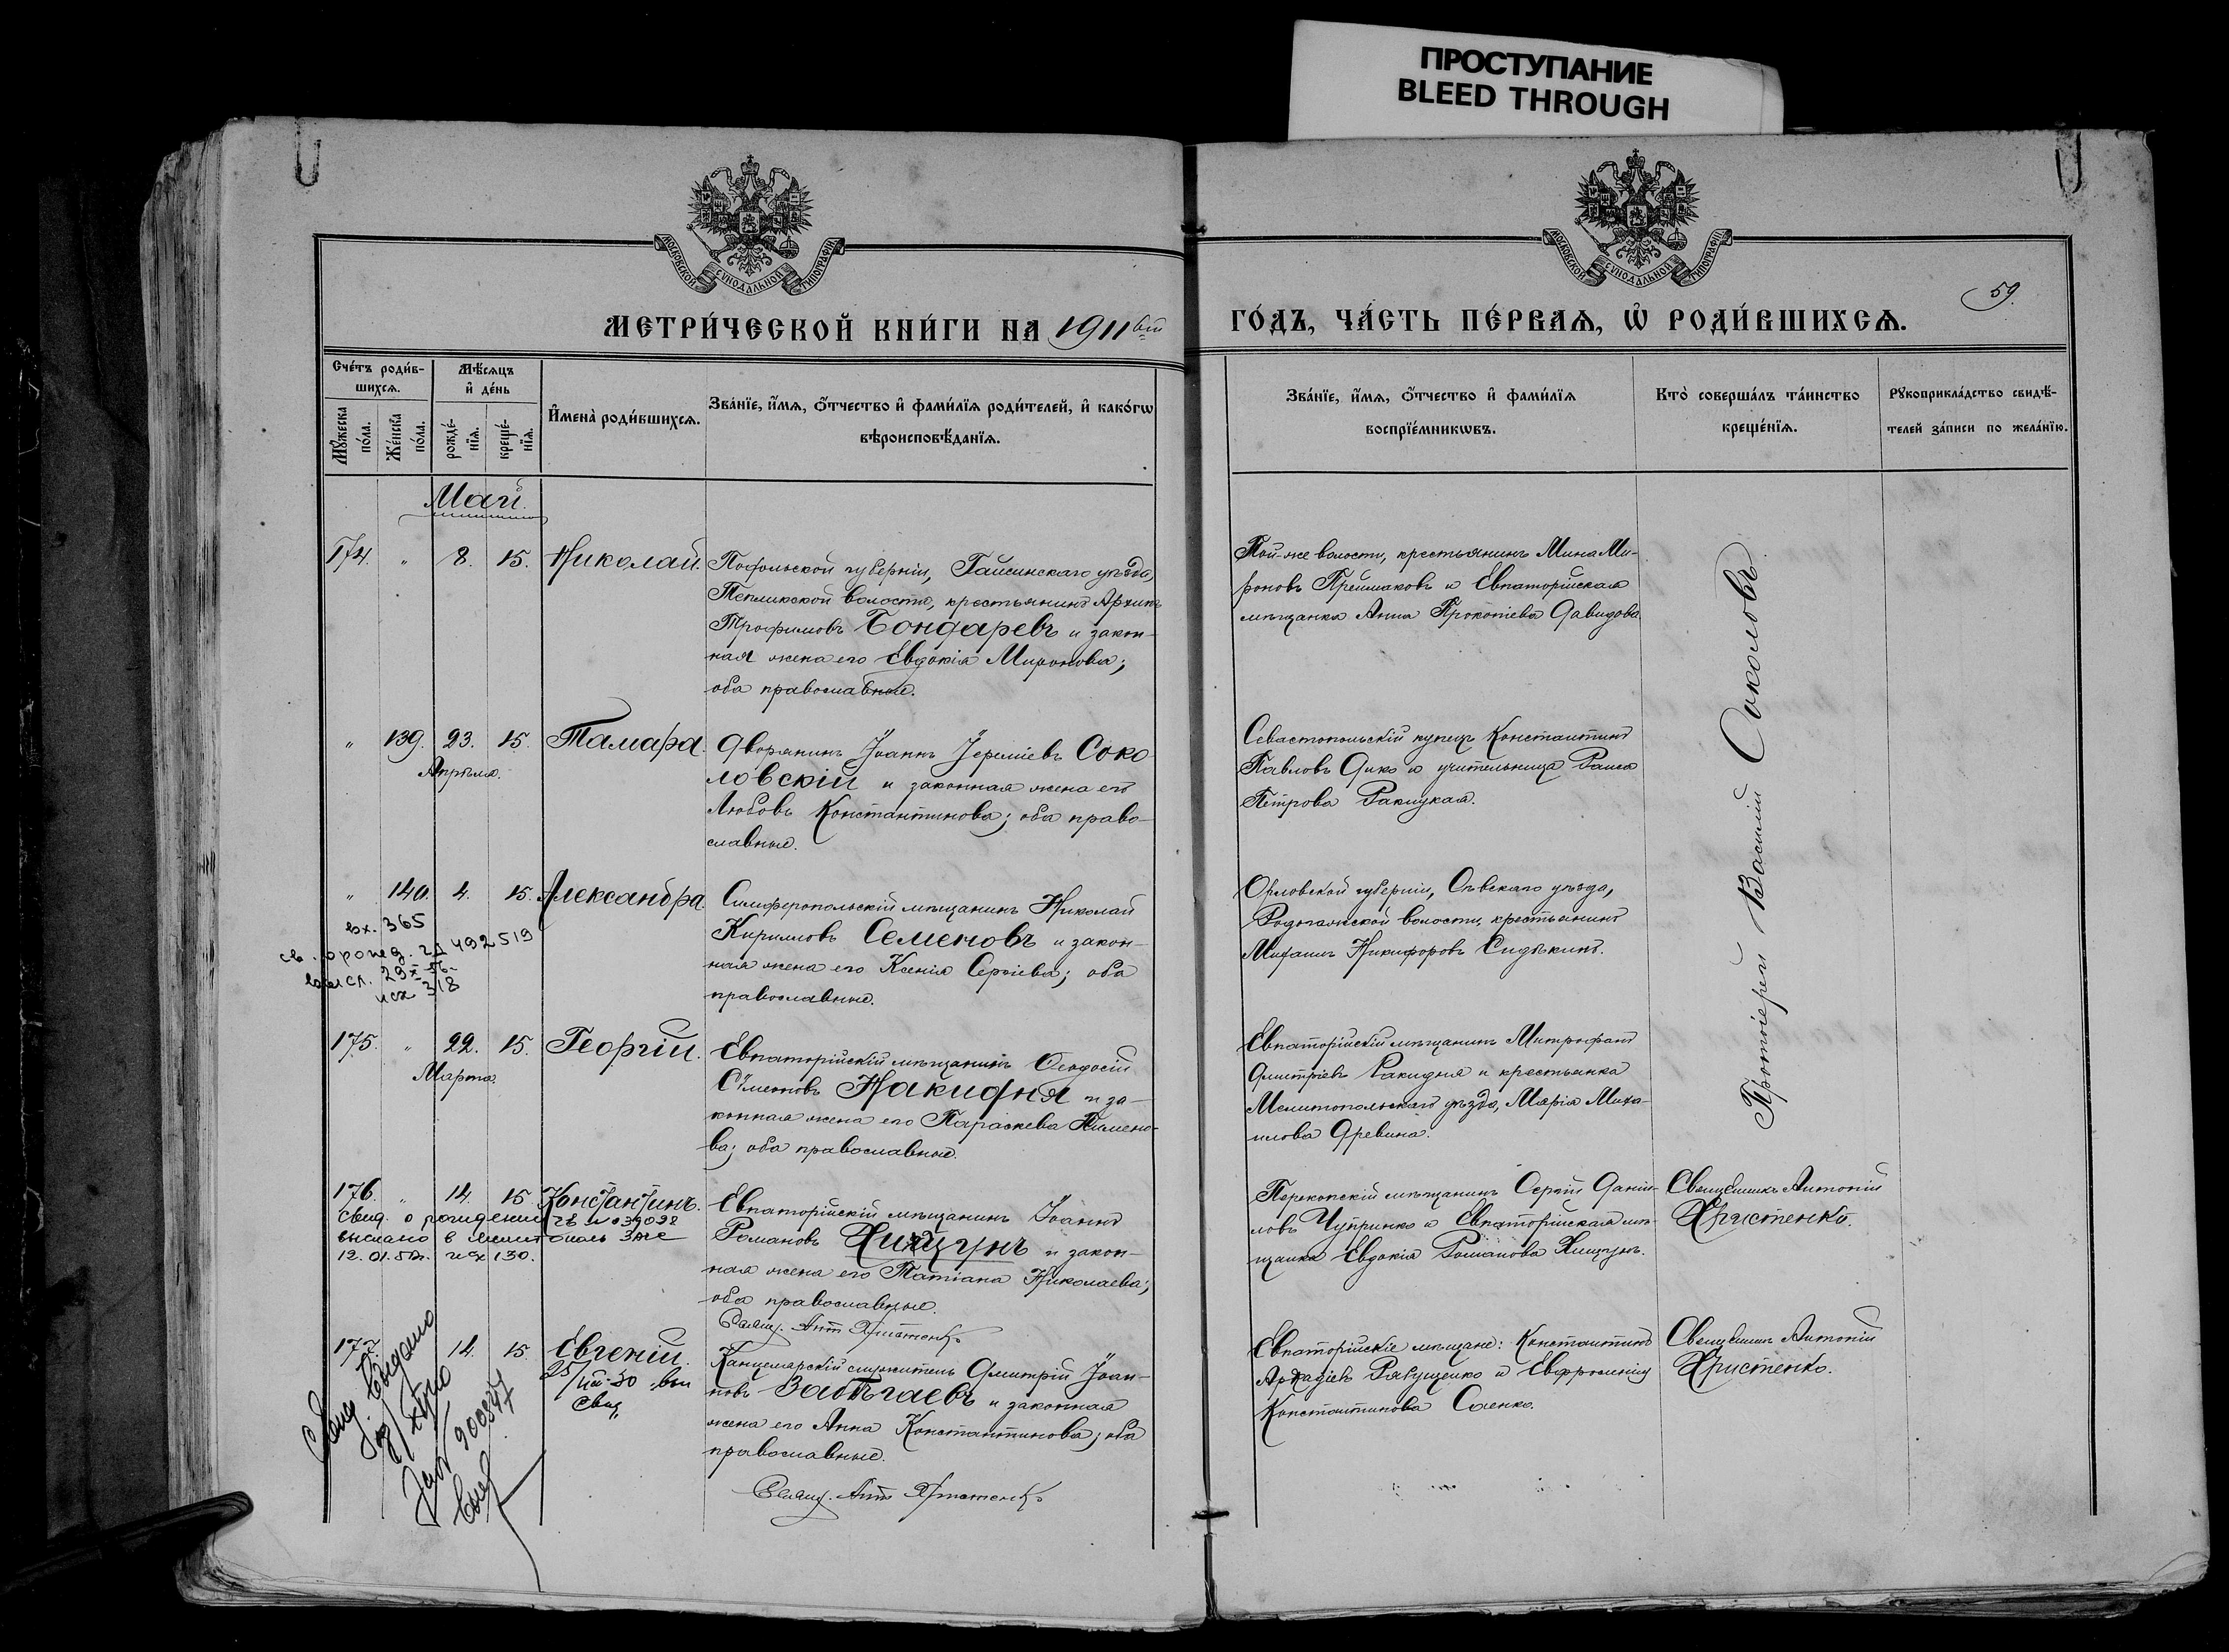 ПРОСТУПАНИЕ
BLEED THROUGH
МОСКОВСКОЙ СѴНОДАЛЬНОЙ ТИПОГРАФІИ
МОСКОВСКОЙ СѴНОДАЛЬНОЙ ТИПОГРАФІИ
59.
МЕТРИ́ЧЕСКОЙ КНИ́ГИ НА 1911 ГО́ДЪ, ЧА́СТЬ ПЕ́РВАѦ, Ѡ҆ РОДИ́ВШИХСѦ.
Сче́тъ роди́в-
шихсѧ.
Мꙋ́жеска по́ла.
Же́нска по́ла.
Мѣ́сѧцъ
и҆ де́нь
рожде́-
нїѧ.
креще́-
нїѧ.
И҆мена̀ роди́вшихсѧ.
Зва́нїе, и҆́мѧ, ѻ҆́тчество и҆ фами́лїѧ роди́телей, и҆ како́гѡ
вѣроисповѣ́данїѧ.
Зва́нїе, и҆́мѧ, ѻ҆́тчество и҆ фами́лїѧ
воспрїе́мникѡвъ.
Кто̀ соверша́лъ та́инство
креще́нїѧ.
Рꙋкоприкла́дство свидѣ́-
телей за́писи по жела́нїю.
Май.
174. " 8. 15. Николай.
Подольской губерніи, Гайсинскаго уѣзда,
Тепликской волости, крестьянинъ Архипъ
Трофимовъ Бондаревъ и закон-
ная жена его Евдокія Миронова;
оба православные.
Той-же волости, крестьянинъ Мина Ми-
роновъ Преймаковъ и Евпаторійская
мѣщанка Анна Прокопіева Давидова
" 139. 23. 15. Тамара.
Апрѣля.
Дворянинъ Іоаннъ Іереміевъ Соко-
ловскій и законная жена его
Любовь Константинова; оба право-
славные.
Севастопольскій купецъ Константинъ
Павловъ Дико и учительница Раиса
Петрова Ракицкая.
" 140. 4. 15. Александра.
вх. 365
492519
исх 318
Симферопольскій мѣщанинъ Николай
Кирилловъ Семеновъ и закон-
ная жена его Ксенія Сергіева; оба
православные.
Орловской губерніи, Сѣвскаго уѣзда,
волости, крестьянинъ
Михаилъ Никифоровъ Сидякинъ.
175. " 22. 15. Георгій.
Марта.
Евпаторійскій мѣщанинъ Ѳеодосій
Сѵмеоновъ Накидня и за-
конная жена его Параскева Пимено-
ва; оба православные.
Евпаторійскій мѣщанинъ Митрофанъ
Димитріевъ и крестьянка
Мелитопольскаго уѣзда, Марія Миха-
илова Древина.
Протоіерей Василій Соколовъ
176. " 14. 15. Константинъ.
свид. о рождении
выслано в
12.01. исх 130.
Евпаторійскій мѣщанинъ Іоаннъ
Романовъ Хищунъ и закон-
ная жена его Татіана Николаева;
оба православные.
Свящ. Ант Христенко
Перекопскій мѣщанинъ Сергій Даніи-
ловъ Чупринко и Евпаторійская мѣ-
щанка Евдокія Романова Хищунъ.
Священникъ Антоній
Христенко.
177. 14. 15. Евгеній.
Свид. выдано
900847
Свид,
Канцелярскій служитель Димитрій Іоан-
новъ Забѣгаевъ и законная
жена его Анна Константинова; оба
православные.
Свящ. Ант Христенко
Евпаторійскіе мѣщане: Константинъ
Аркадіевъ Рябущенко и Евфросинія
Константинова Саенко.
Священникъ Антоній
Христенко.